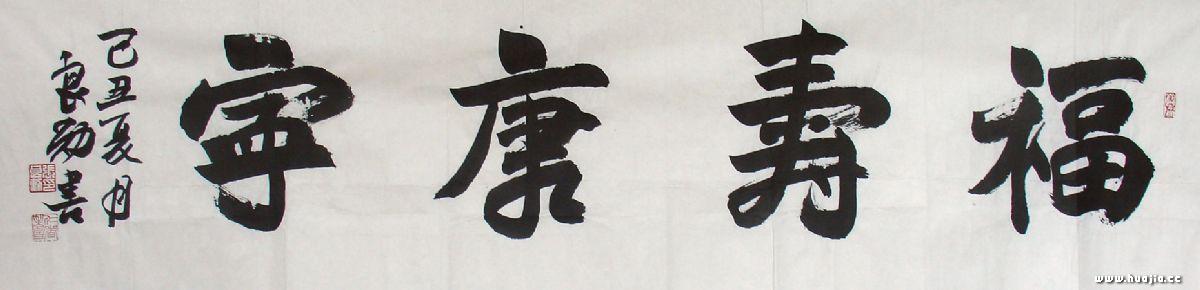 福壽康寧
己丑夏月
良書
www.huajia.cc